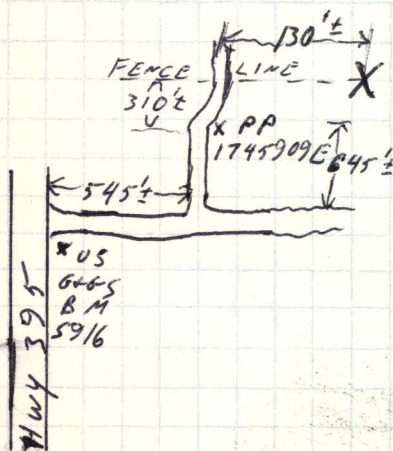 130'±
FENCE LINE
310'±
X
x PP
1745909E
645'±
545'±
x US
G+GS
BM
5916
Hwy 395